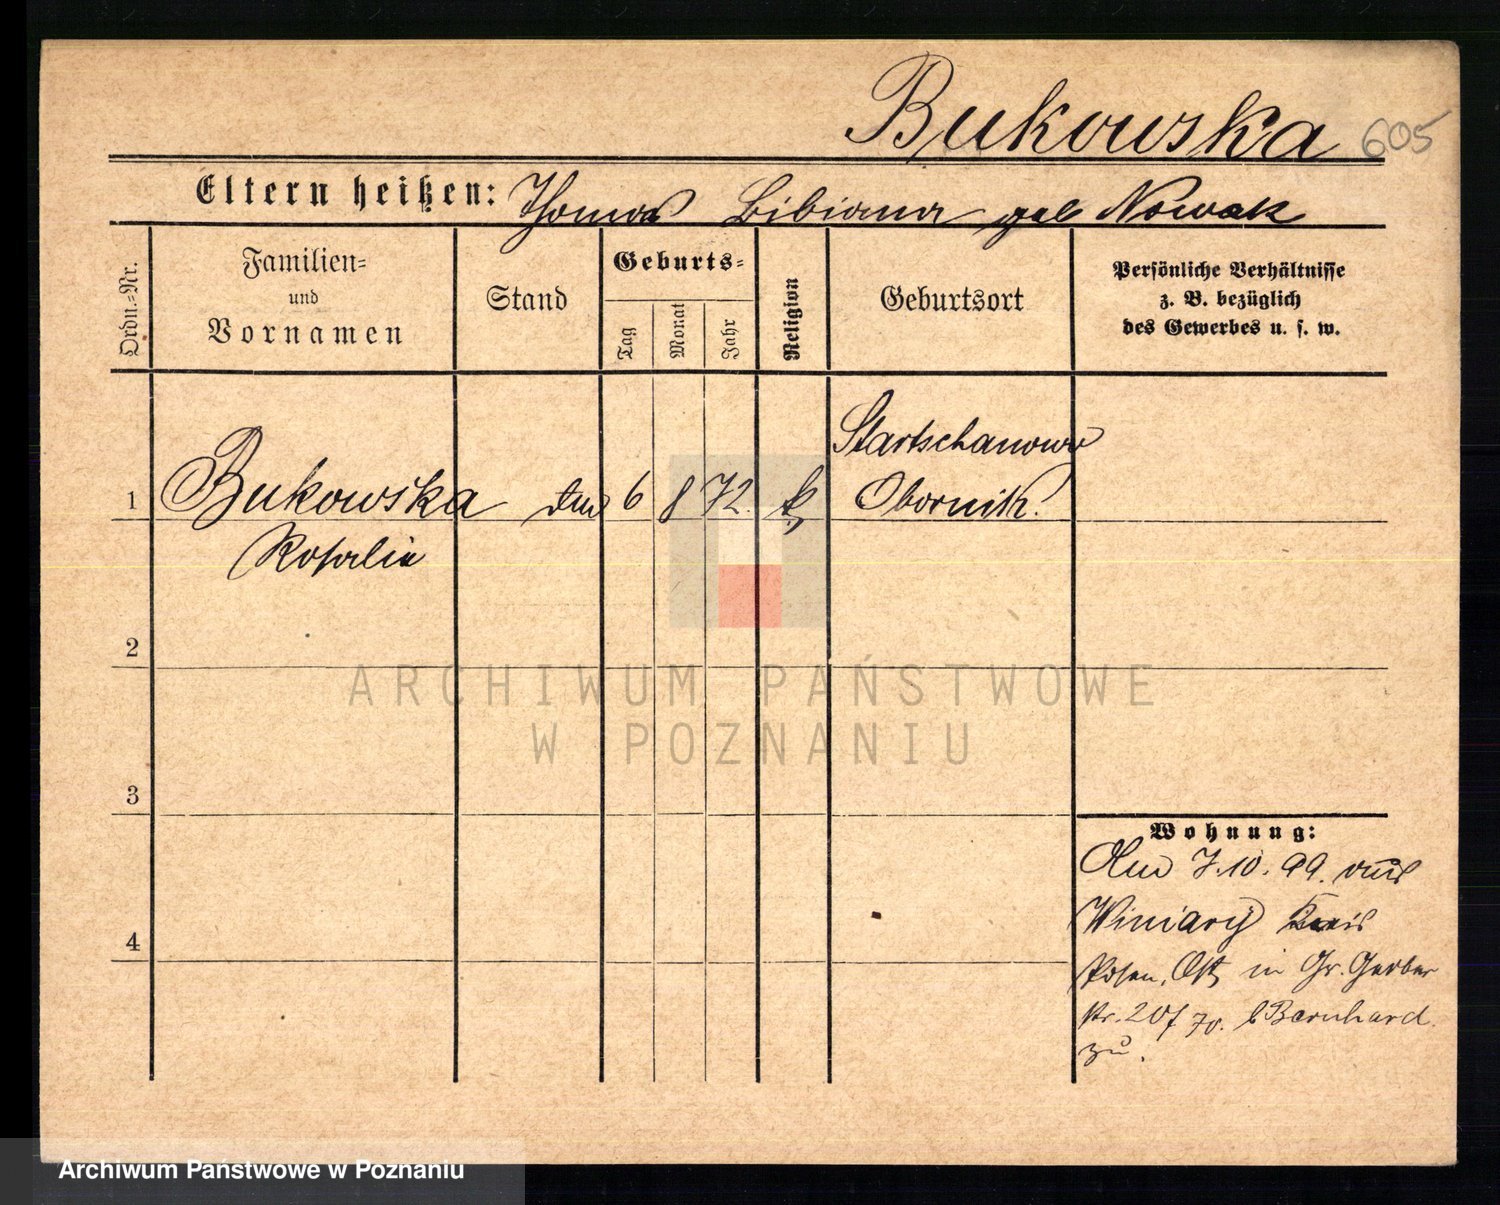 Bukowska 605
Eltern heißen: Thomas Bibiana geb Nowak
Ordn.-Nr.
Familien-
und
Vornamen
Stand
Geburts-
Tag
Monat
Jahr
Religion
Geburtsort
Persönliche Verhältnisse
z. B. bezüglich
des Gewerbes u. s. w.
Startschanowo
1 Bukowska 6 8 72. k Obornik.
Rosalie
2
3
4
Wohnung:
Am 7.10.99. aus
Winiary Kreis
Posen, Ost, in Gr. Gerber
str. 20 b Bernhard.
zu.
ARCHIWUM PAŃSTWOWE
W POZNANIU
Archiwum Państwowe w Poznaniu